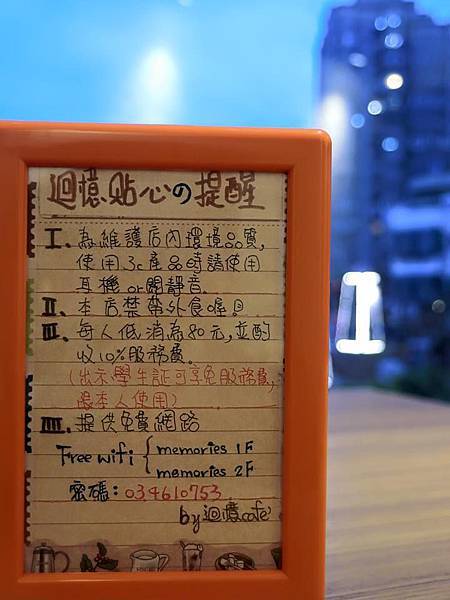 迴憶貼心の提醒
I. 為維護店內環境品質,
使用3c產品時請使用
耳機 or 關靜音.
II. 本店禁帶外食喔!
III. 每人低消為80元,並酌
收10%服務費.
(出示學生証可享免服務費,
限本人使用)
IIII. 提供免費網路
Free wifi { memories 1F
memories 2F
密碼:034610753
by 迴憶cafe'